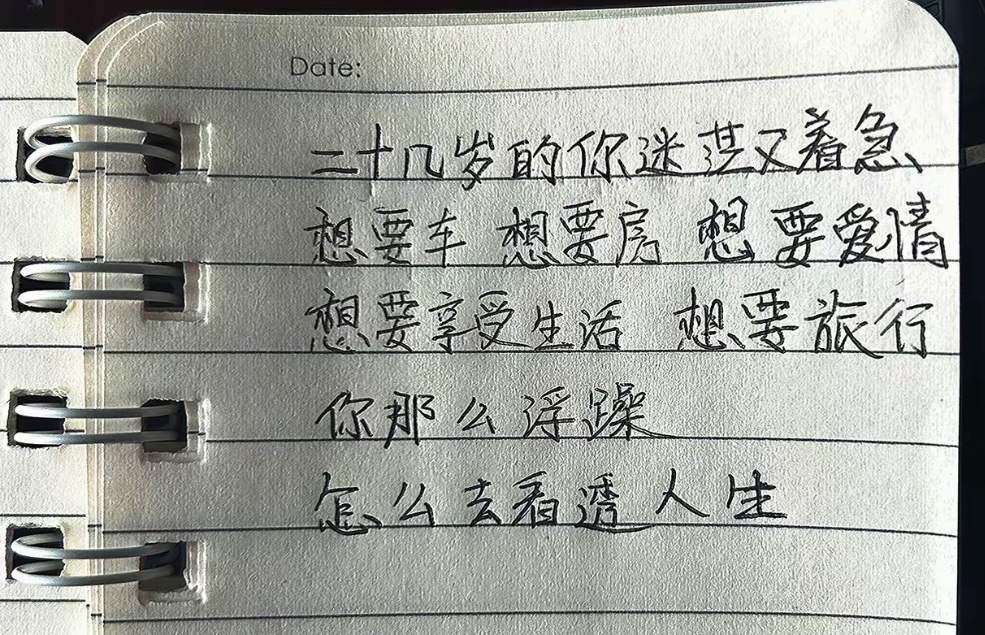 Date:
二十几岁的你迷茫又着急
想要车 想要房 想要爱情
想要享受生活 想要旅行
你那么浮躁
怎么去看透人生